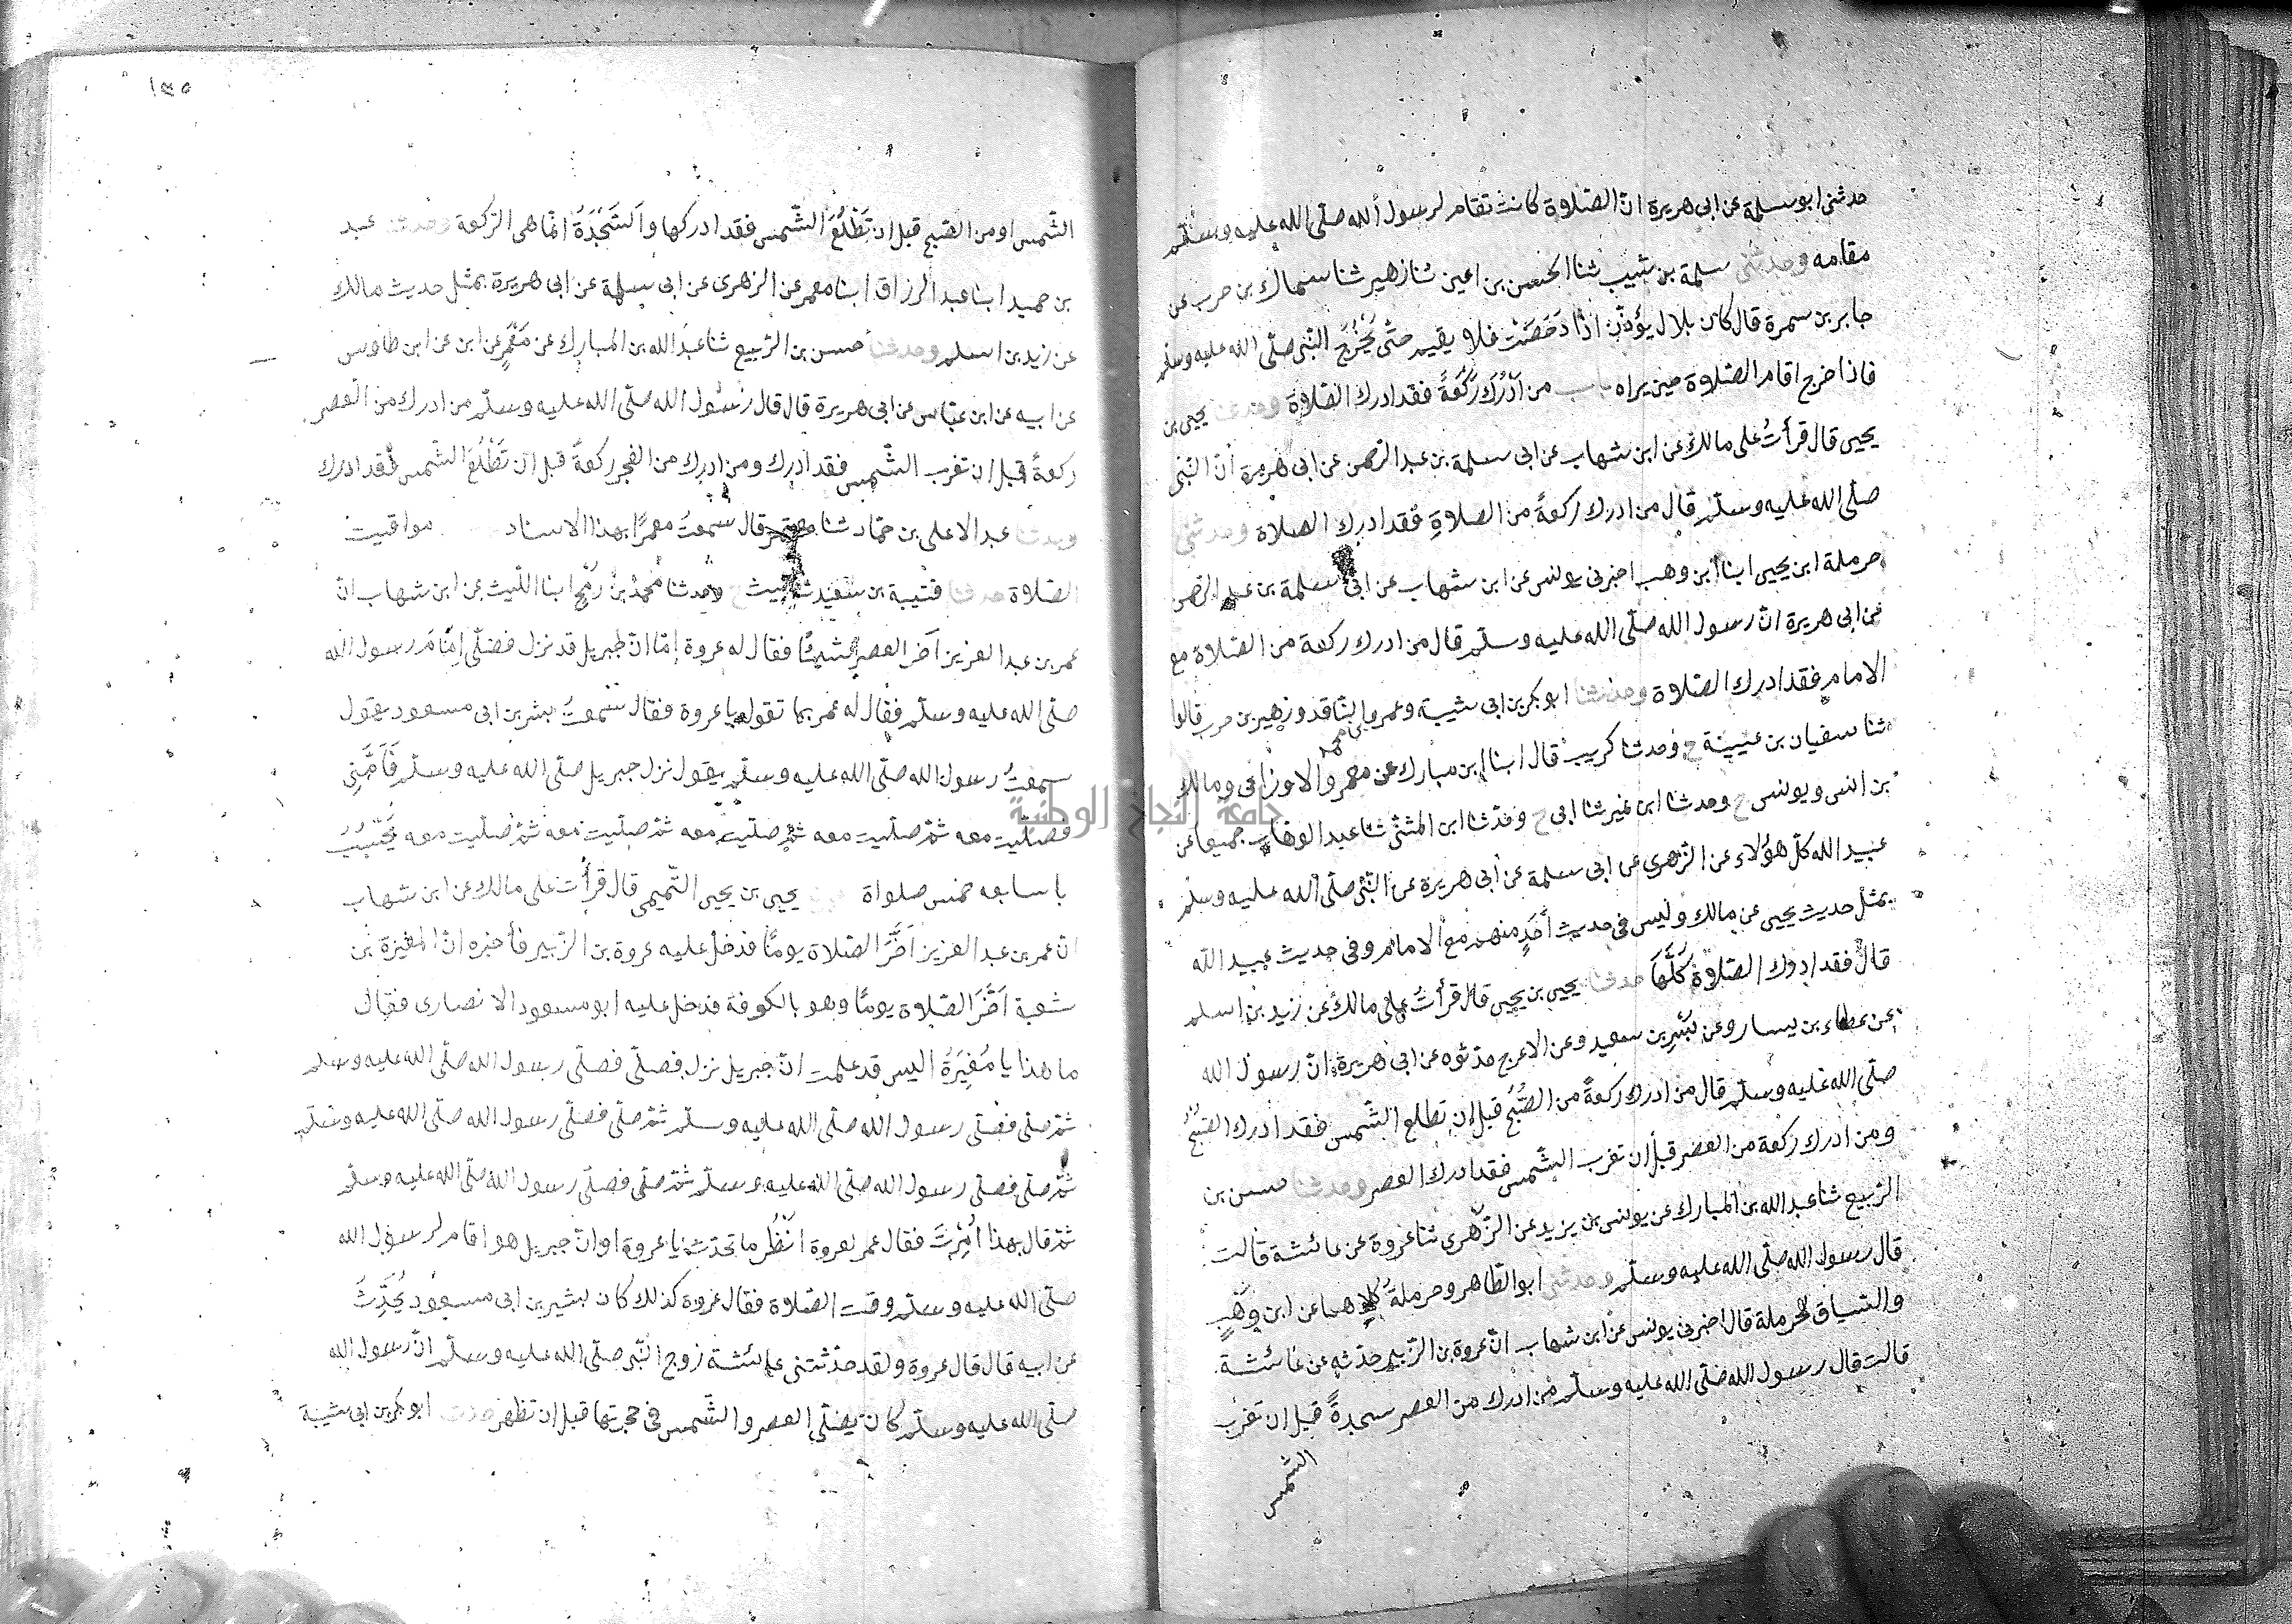 حدثنى ابو سلمة عن ابى هريرة انّ الصّلاوة كانت تقام لرسول الله صلّى الله عليه وسلّم
مقامه وحدثنى سلمة بن شبيب ثنا الحسن بن اعين ثنا زهير ثنا سماك بن حرب عن
جابر بن سمرة قال كان بلال يؤذّن اذا دَحَضَتْ فلا يقيم حتّى يَخْرُجَ النّبى صلّى الله عليه وسلّم
فاذا خرج اقام الصّلاوة حين يراه باب من اَدْرَكَ رَكْعَةً فقد ادرك الصّلاوة وحدثنا يحيى بن
يحيى قال قرأتُ على مالك عن ابن شهاب عن ابى سلمة بن عبد الرّحمن عن ابى هريرة انّ النّبى
صلّى الله عليه وسلّم قال من ادرك ركعةً من الصلاةِ فقد ادرك الصلاة وحدثنى
حرملة ابن يحيى ابنا ابن وهب اخبرنى يونس عن ابن شهاب عن ابى سلمة بن عبد الرّحمن
عن ابى هريرة انّ رسول الله صلّى الله عليه وسلّم قال من ادرك ركعة من الصّلاة مع
الامام فقد ادرك الصّلاوة وحدثنا ابو بكر بن ابى شيبة وعمرو النّاقد وزهير بن حرب قالوا
ثنا سفيان بن عيينة ح وحدثنا كريب قال ابنا ابن مبارك عن معمر والاوزاعى ومالك
بن انس ويونس ح وحدثنا ابن نمير ثنا ابى ح وحدّثنا ابن المثنّى ثنا عبد الوهّاب جميعا عن
عبيد الله كلّ هؤلاء عن الزّهرى عن ابى سلمة عن ابى هريرة عن النّبى صلّى الله عليه وسلّم
بمثل حديث يحيى عن مالك وليس فى حديث اَحَدٍ منهم مع الامام وفى حديث عبيد الله
قال فقد ادرك الصّلاوة كُلَّهَا حدثنا يحيى بن يحيى قال قرأتُ على مالك عن زيد بن اسلم
عن عطاء بن يسار وعن بُسْرِ بن سعيد وعن الاعرج حدّثوه عن ابى هريرة انّ رسول الله
صلّى الله عليه وسلّم قال من ادرك ركعةً من الصُّبْح قبل ان تطلع الشّمس فقد ادرك الصّبْحَ
ومن ادرك ركعة من العصر قبل ان تغرب الشّمس فقد ادرك العصر وحدثنا حسن بن
الرّبيع ثنا عبد الله بن المبارك عن يونس بن يزيد عن الزّهرى ثنا عروة عن عائشة قالت
قال رسول الله صلّى الله عليه وسلّم وحدثنى ابو الطّاهر وحرملةُ كلاهما عن ابن وَهْبٍ
والسّياق لحرملة قال اخبرنى يونس عن ابن شهاب انّ عروة بن الزّبير حدّثه عن عائشة
قالت قال رسول الله صلّى الله عليه وسلّم من ادرك من العصر سجدةً قبل ان تغرب
الشمس
١٣٥
الشّمس او من الصّبح قبل ان تَطْلُعَ الشّمس فقد ادركها والسَّجْدَةُ انّما هى الرّكعة وحدثنا عبد
بن حميد ابنا عبد الرزاق ابنا معمر عن الزهرى عن ابى سلمة عن ابى هريرة بمثل حديث مالك
عن زيد بن اسلم وحدثنا حسن بن الرّبيع ثنا عبد الله بن المبارك عن مَعْمَرٍ عن ابن عن ابن طاوس
عن ابيه عن ابن عبّاس عن ابى هريرة قال قال رسول الله صلّى الله عليه وسلّم من ادرك من العصر
ركعةً قبل ان تغرب الشّمس فقد ادرك ومن ادرك من الفجر ركعةً قبل ان تَطْلُعَ الشّمس فقد ادرك
وحدثنا عبد الاعلى بن حمّاد ثنا معتمر قال سمعتُ معمرًا بهذا الاسناد مواقيت
الصّلاوة حدثنا قتيبة بن سعيد ثنا ليث ح وحدثنا محمّد بن رُمْحٍ ابنا اللّيث عن ابن شهاب انّ
عمر بن عبد العزيز اَخّر العصر شيئًا فقال له عروة اِمّا انّ جبريل قد نزل فصلّى اِمَامَ رسول الله
صلّى الله عليه وسلّم فقال له عمر بما تقول يا عروة فقال سمعتُ بشر بن ابى مسعود يقول
سمعتُ رسول الله صلّى الله عليه وسلّم يقول نزل جبريل صلّى الله عليه وسلّم فَاَمَّنِى
فصلّيت معه ثمّ صلّيت معه ثمّ صلّيت معه ثمّ صلّيت معه ثمّ صلّيت معه يَحْسُبُ
باسابعه خمس صلواة يحيى بن يحيى التّميمى قال قرأت على مالك عن ابن شهاب
انّ عمر بن عبد العزيز اَخَّرَ الصّلاة يومًا فدخل عليه عروة بن الزّبير فأخبره انّ المغيرة بن
شعبة اَخَّرَ الصّلاوة يومًا وهو بالكوفة فدخل عليه ابو مسعود الانصارى فقال
ما هذا يا مُغِيَرَةُ اليس قد علمت انّ جبريل نزل فصلّى فصلّى رسول الله صلّى الله عليه وسلم
ثمّ صلّى فصلّى رسول الله صلّى الله عليه وسلّم ثمّ صلّى فصلّى رسول الله صلّى الله عليه وسلّم
ثمّ صلّى فصلّى رسول الله صلّى الله عليه وسلّم ثمّ صلّى فصلّى رسول الله صلّى الله عليه وسلّم
ثمّ قال بهذا اُمِرْتَ فقال عمر لعروة اُنْظُر ما تحدّث يا عروة او انّ جبريل هو اقام لرسول الله
صلّى الله عليه وسلّم وقت الصّلاة فقال عروة كذلك كان بشير بن ابى مسعود يُحَدِّثُ
عن ابيه قال قال عروة ولقد حدّثتنى عائشة زوج النّبى صلّى الله عليه وسلّم انّ رسول الله
صلّى الله عليه وسلّم كان يصلّى العصر والشّمس فى حجرتها قبل ان تظهر حدثنا ابو بكر بن ابى شيبة
جامعة النجاح الوطنية